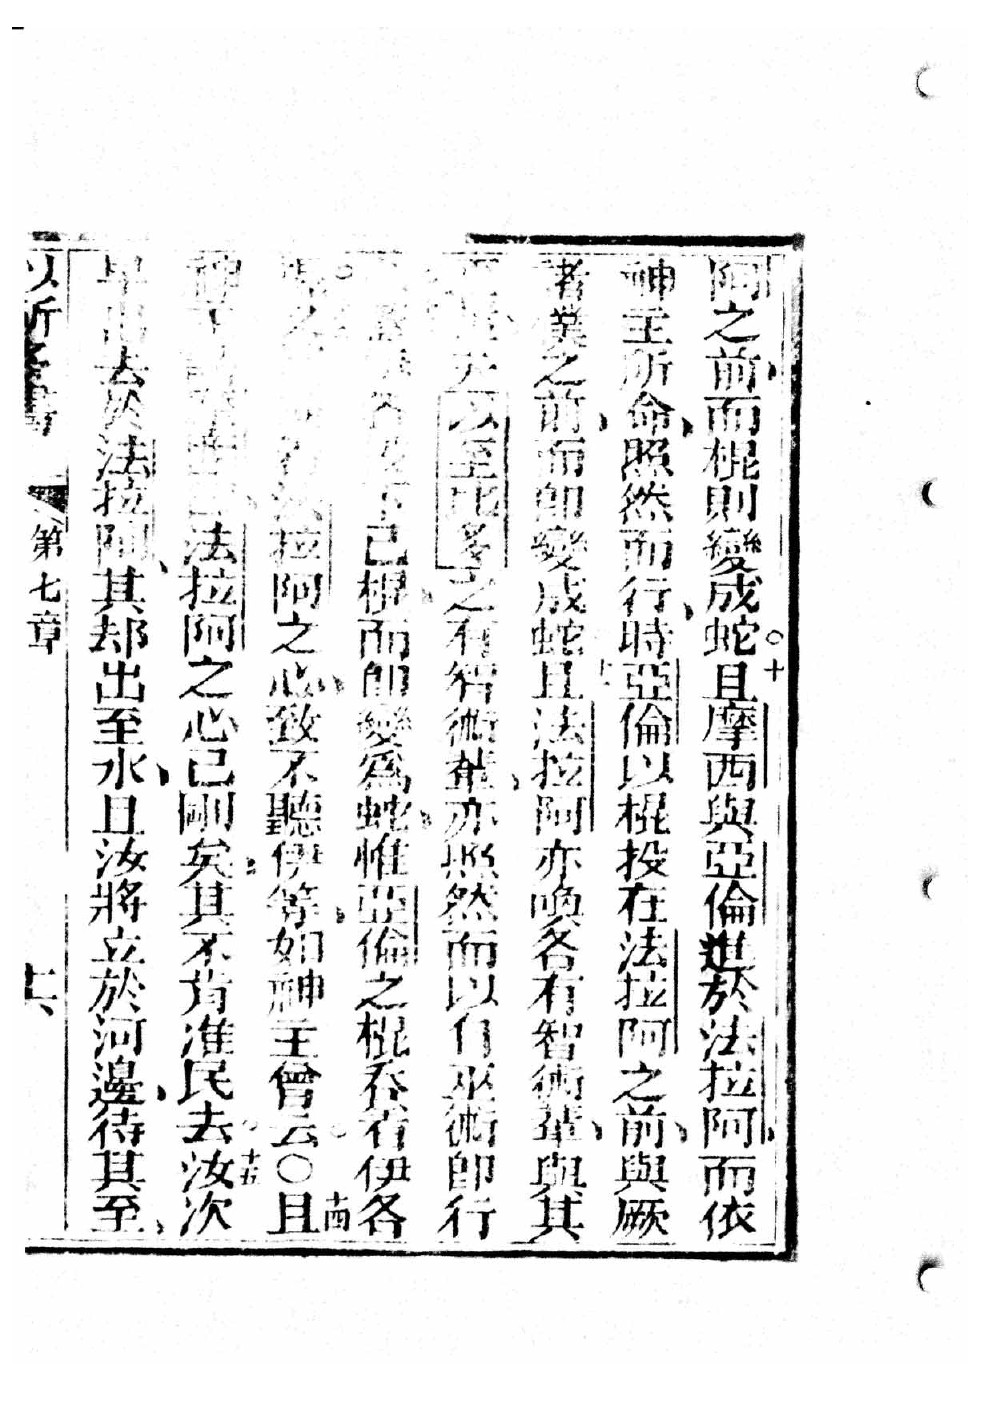 阿之前而棍則變成蛇○十且摩西與亞倫進於法拉阿而依
神主所命照然而行時亞倫以棍投在法拉阿之前與厥
者業之前而即變成蛇且法拉阿亦喚各有智術輩與其
以至比多之有智術輩亦照然而以自巫術即行
己棍而即變為蛇惟亞倫之棍吞省伊各
法拉阿之心致不聽伊等如神主曾云○十四且
法拉阿之心已剛矣其不肯准民去十五汝次
早出去於法拉阿其却出至水且汝將立於河邊待其至
第七章 十六